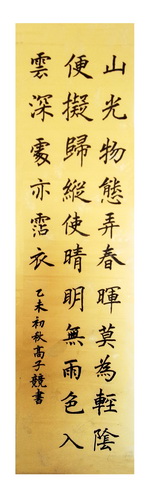 山光物態弄春暉莫為輕陰
便擬歸縱使晴明無雨色入
雲深處亦霑衣
乙未初秋高子競書